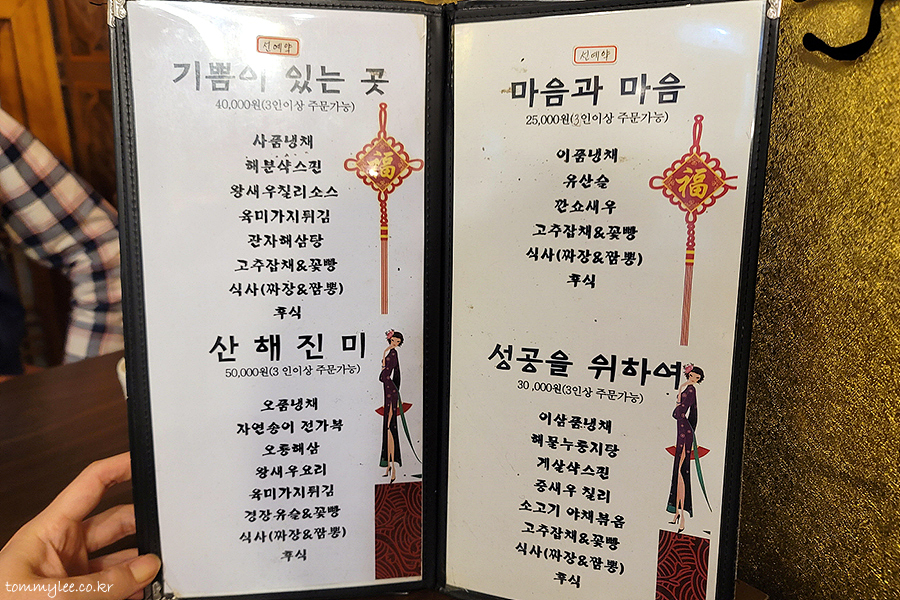 선예약
기쁨이 있는 곳
40,000원(3인이상 주문가능)
사품냉채
해분샥스핀
왕새우칠리소스
육미가지튀김
관자해삼탕
고추잡채&꽃빵
식사(짜장&짬뽕)
후식
福
산해진미
50,000원(3 인이상 주문가능)
오품냉채
자연송이 전가복
오룡해삼
왕새우요리
육미가지튀김
경장유슬&꽃빵
식사(짜장&짬뽕)
후식
선예약
마음과 마음
25,000원(3인이상 주문가능)
이품냉채
유산슬
깐쇼새우
고추잡채&꽃빵
식사(짜장&짬뽕)
후식
福
성공을 위하여
30 ,000원(3인상 주문가능)
이삼품냉채
해물누룽지탕
게살샥스핀
중새우 칠리
소고기 야채볶음
고추잡채&꽃빵
식사(짜장&짬뽕)
후식
tommylee.co.kr